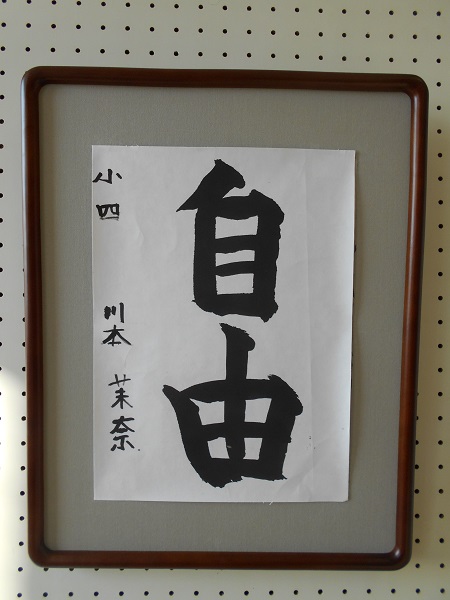 自由
小四 川本 茉奈